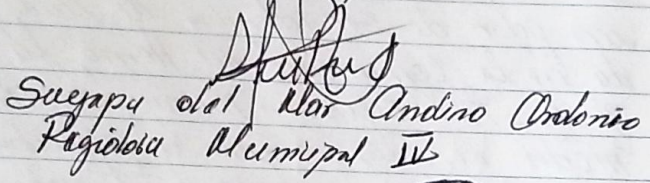 Suyapa del Mar Andino Ordonio
Regidora Municipal IV